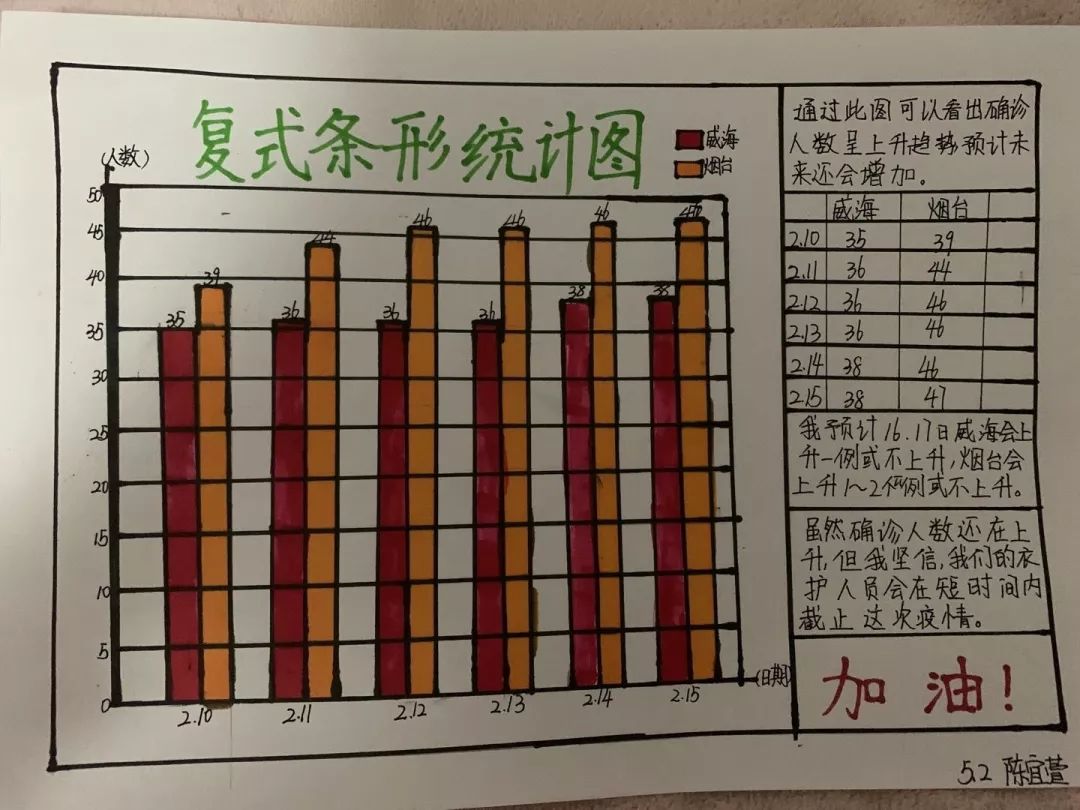 复式条形统计图
威海
烟台
(人数)
50
45
40
35
30
25
20
15
10
5
0
35 39
36 44
36 46
36 46
38 46
38
2.10 2.11 2.12 2.13 2.14 2.15
(日期)
通过此图可以看出确诊
人数呈上升趋势预计未
来还会增加。
威海 烟台
2.10 35 39
2.11 36 44
2.12 36 46
2.13 36 46
2.14 38 46
2.15 38 47
我予预计16.17日威海会上
升一例或不上升,烟台会
上升1~2例或不上升。
虽然确诊人数还在上
升,但我坚信,我们的衣
护人员会在短时间内
截止这次疫情。
加油!
5.2 陈宜萱